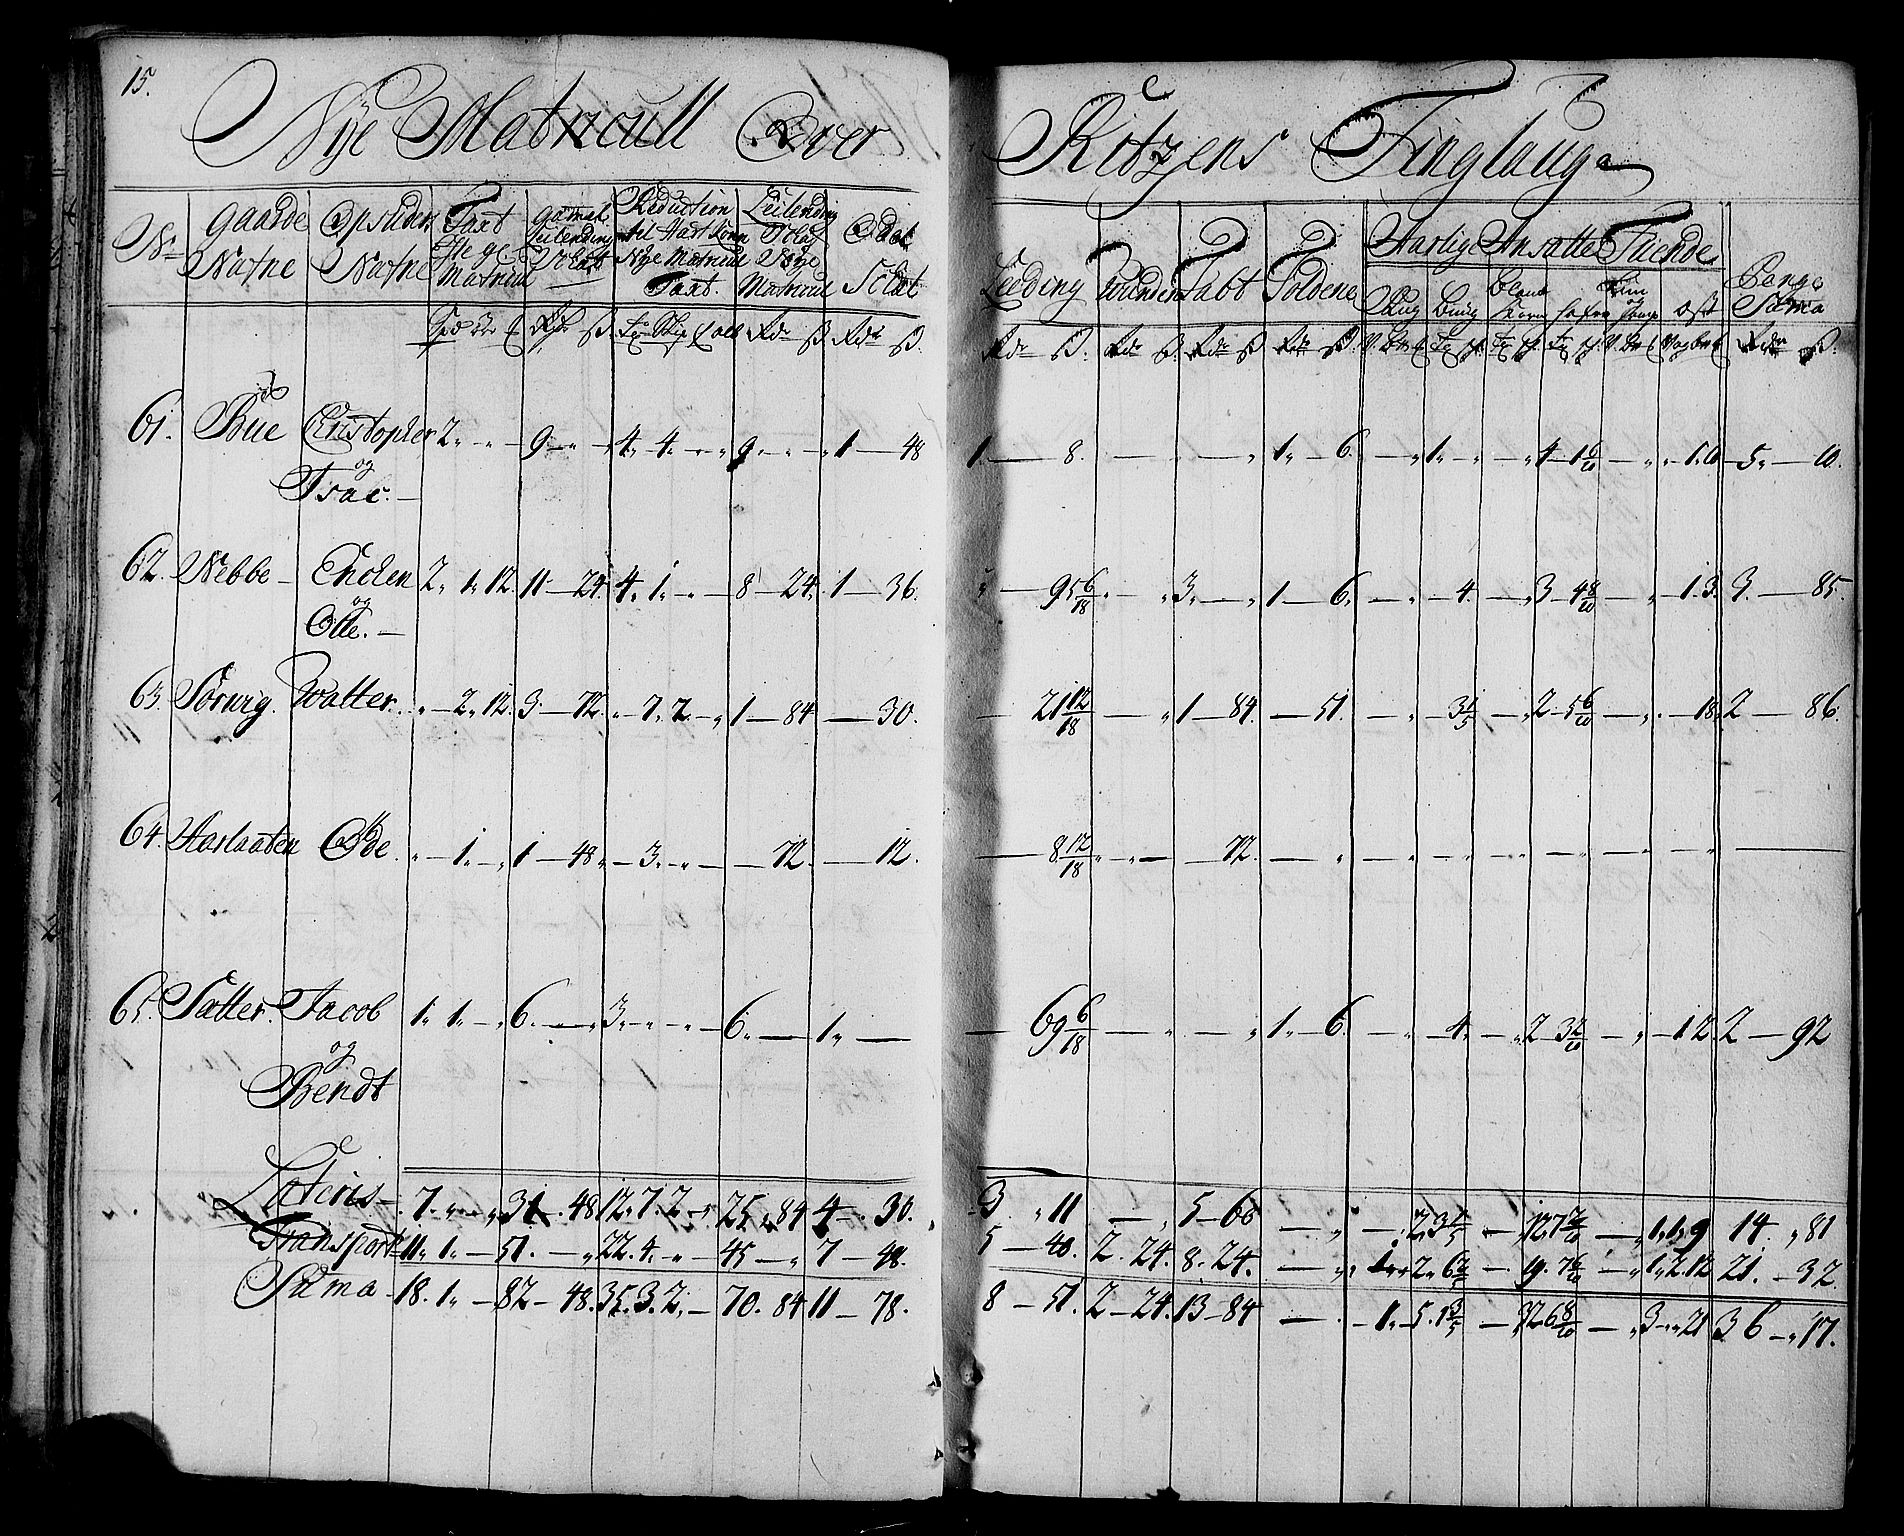 15.
Nye Matricull Over Ritzens Tinglaug
No Gaarde Nafne Opsidder Nafne Taxt Matricul Gamel Leilending Skat Reduction til Hartkorn Nye Matricul Taxt. Leilending Skat Nye Matricul Odel Skat Leeding Tabt Aarlig Ansatte Tiende Penge Suma
Laug biug bland korn hafre ost
61. Büe Christopher 2 9 4 4 9 1 48 1 8. 1 6 1 4 1 6/10 1. 0 5 10.
og
Isac.
62. Nebbe Cholen 2 1 12 11 24 4 1 8 24 1 36. 95 6/18 3 1 6 4 3 4 8/10 1. 3 3. 85.
og
Olle.
63. Sørvig. Walter. 2 12. 3 72 7 2 1 84 30. 21 12/18 1 84. 51. 3 1/5 2 5 6/10 18. 2 86.
64. Aarlaaten Ode 1 1 48 3 72. 12. 8 12/18 72.
65. Sætter. Jacob 1 1 6 3 6 1 69 6/18 1 6. 4 2 3 2/10 1 2. 2 92
og
Bendt
Lateris 7. 31 48 12. 7. 2 25 84 4 30. 3 11 5 66 2. 3 1/5 12 7 2/10 1. 1. 9 14. 81
Transport 11. 1. 51. 22. 4. 45 7 48. 5 40. 2. 24. 8. 24. 1 2. 6 2/5 19. 7 6/10 1. 2. 12 21. 32.
Suma 18. 1. 82 48. 35. 3. 2. 70. 84 11 78. 8 51. 2 24. 13 84 1. 5. 1 3/5 32 6 8/10 3 21 36 17.